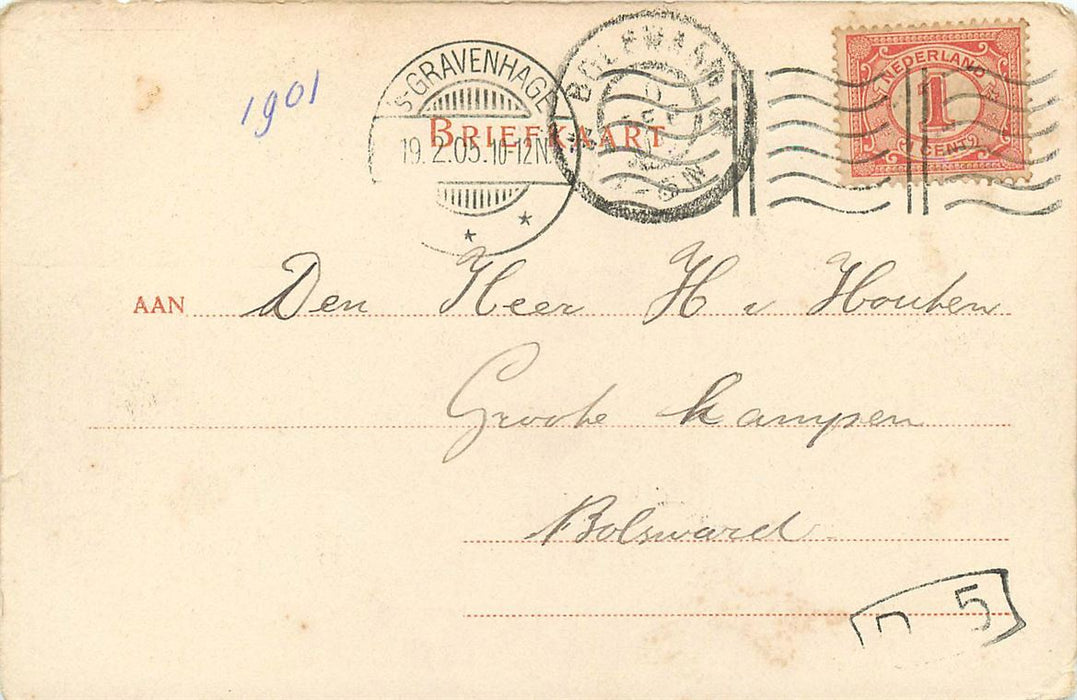 1901
'S-GRAVENHAGE
19. 2.05. 10-12N
BOLSWARD
BRIEFKAART
NEDERLAND
1
1 CENT
AAN Den Heer H v Houten
Groote kampen
Bolsward
5